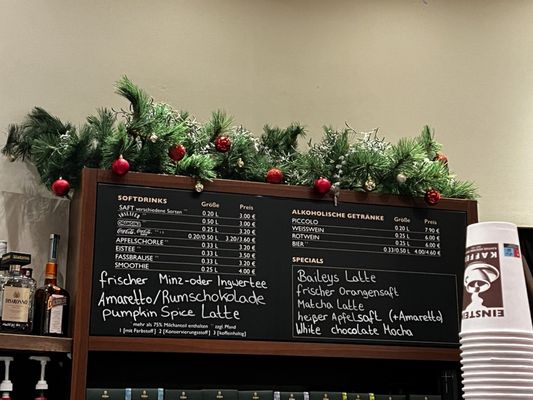 SOFTDRINKS Größe Preis
SAFT verschiedene Sorten 0.20 L 3.00 €
0.50 L 3.00 €
0.25 L
Coca-Cola 0.20 L
APFELSCHORLE 0.20/0.50 L 3.20/3.60 €
EISTEE 0.33 L 3.20 €
FASSBRAUSE 0.33 L
SMOOTHIE 0.25 L 4.00 €
frischer Minz-oder Ingwertee
Amaretto/Rumschokolade
pumpkin Spice Latte
mehr als Salzmandeln
ALKOHOLISCHE GETRÄNKE Größe Preis
PICCOLO 0.20 L 7.90 €
WEISSWEIN 0.25 L 6.00 €
ROTWEIN 0.25 L 6.00 €
BIER 0.33/0.50 L 4.00/4.60 €
SPECIALS
Baileys Latte
frischer Orangensaft
Matcha Latte
heißer Apfelsaft (+Amaretto)
White chocolate Mocha
DISARONNO
KAFFEE
EINSTEIN